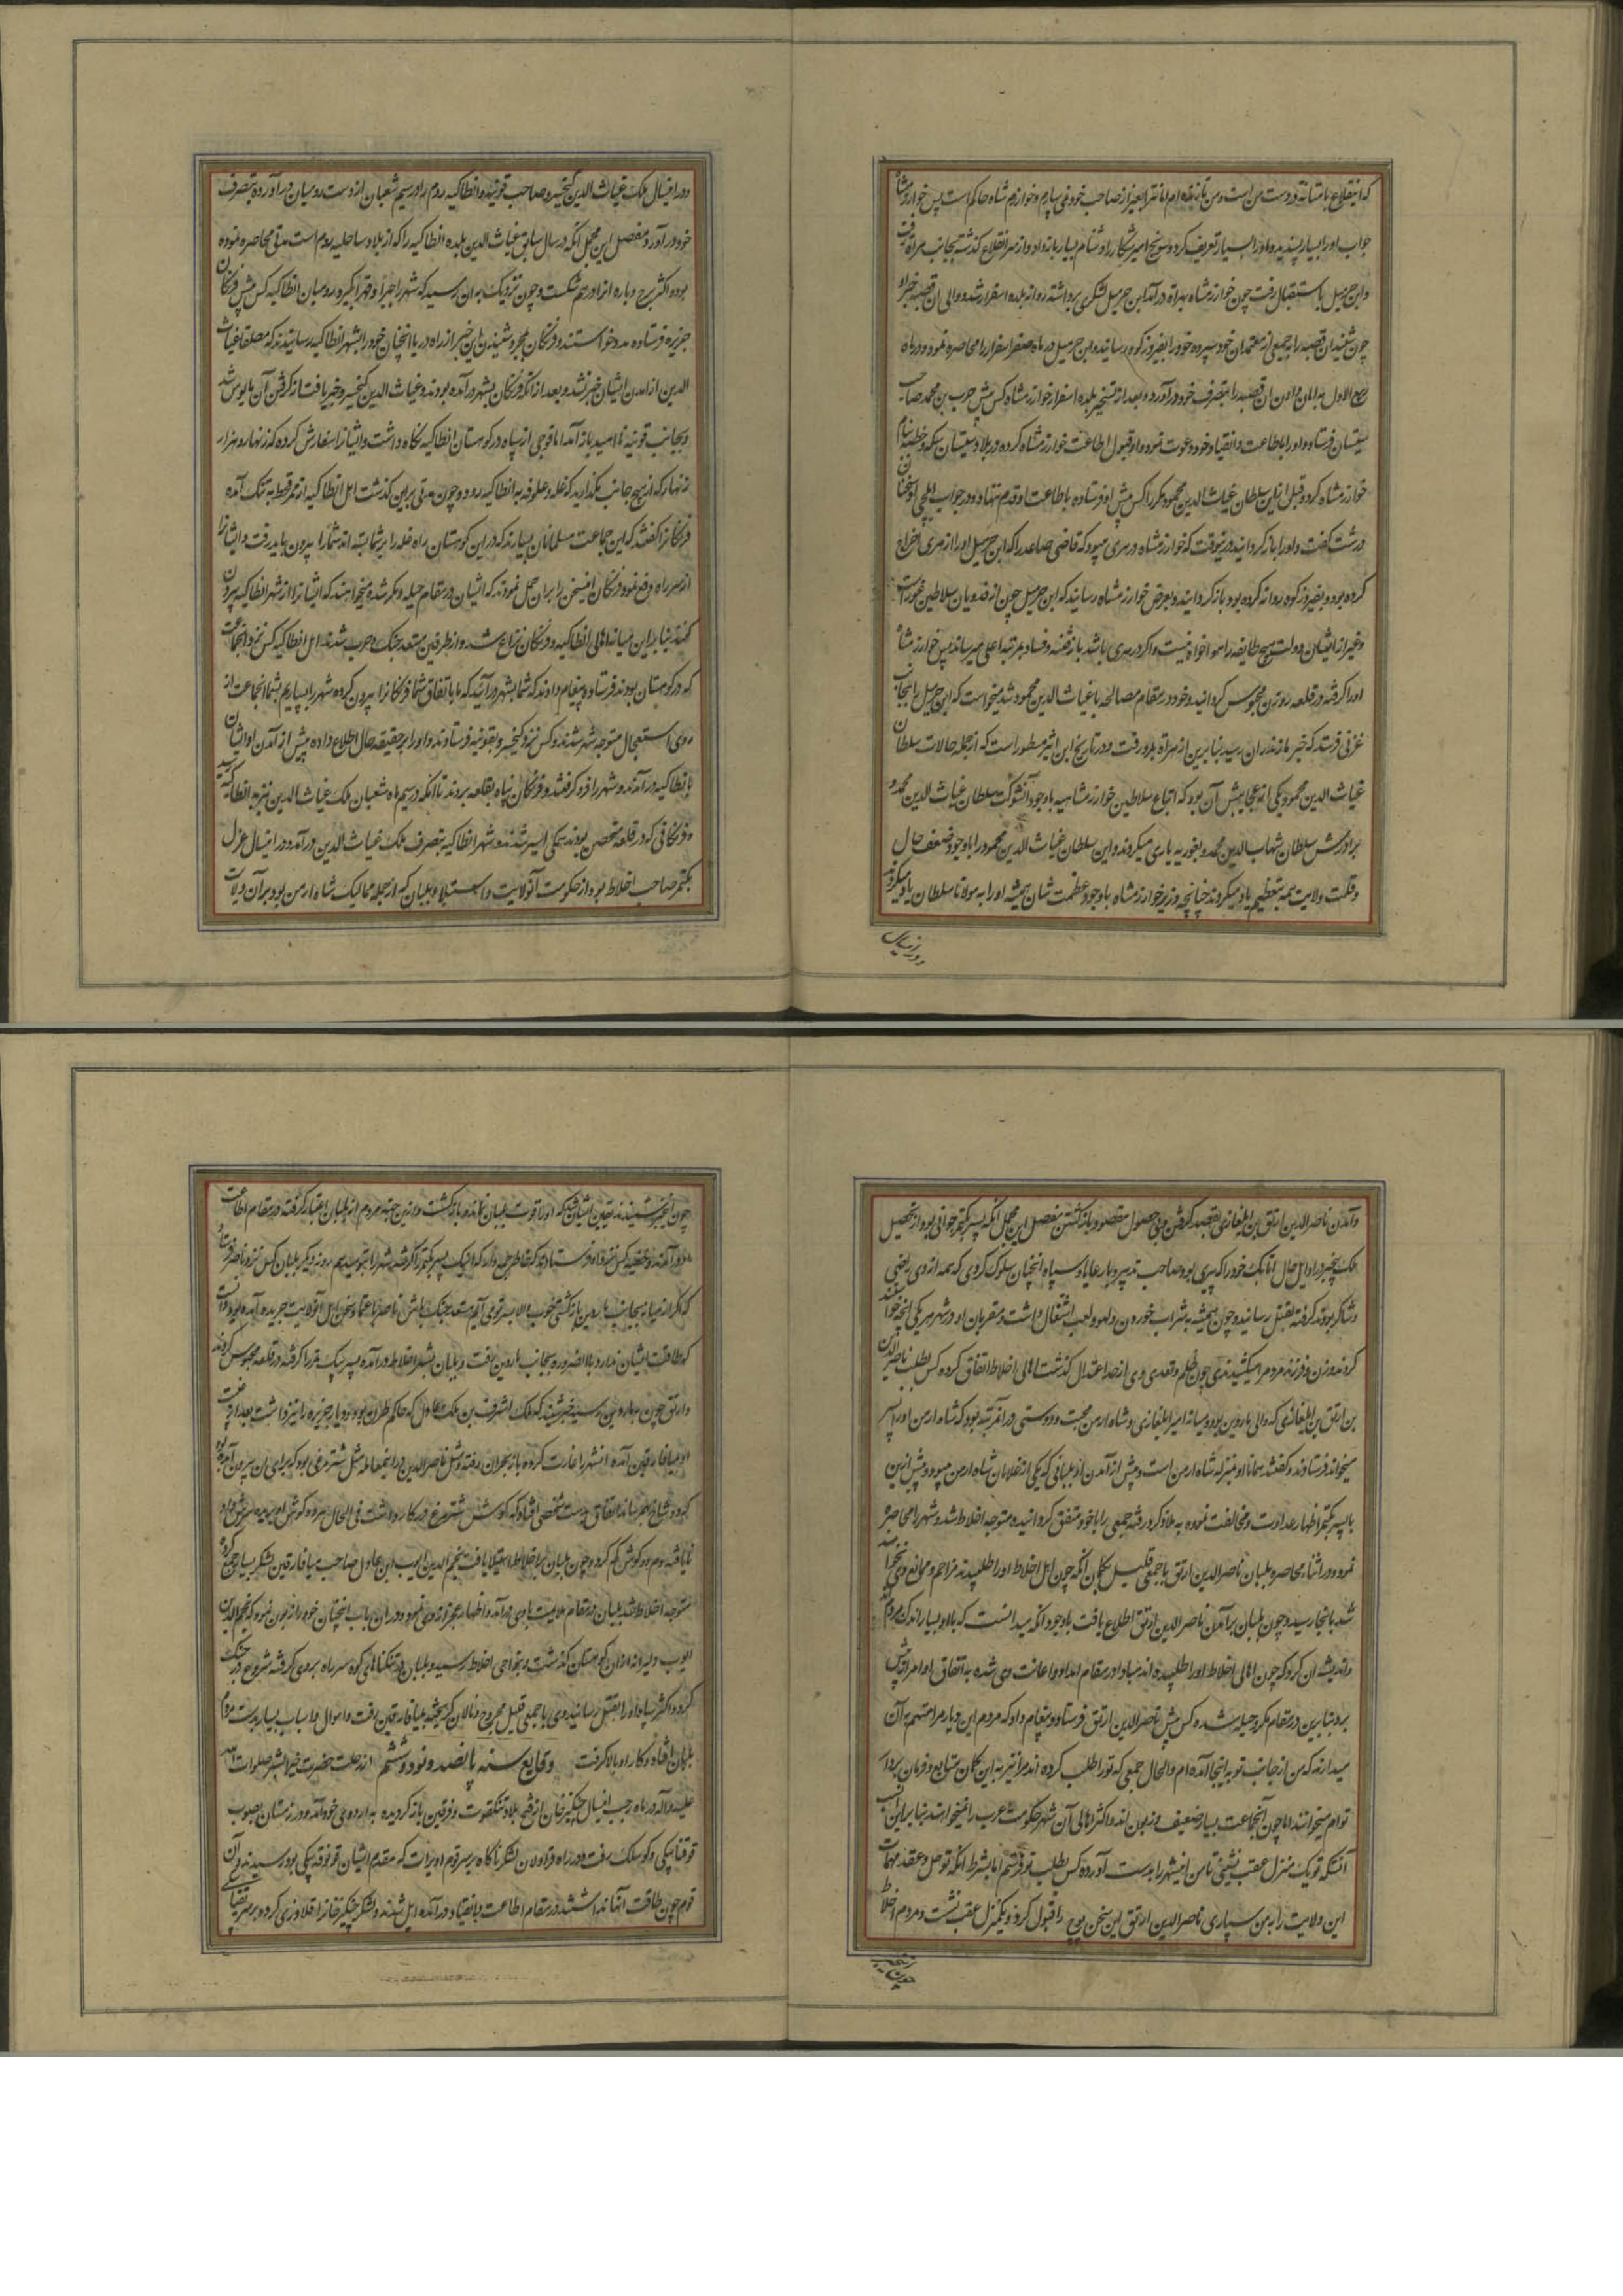 که اینقلاع بامتانة در دست من است و من تا زنده‌ام امانترا بغیر از صاحب خود نمی سپارم و خوارزم شاه حاکم است پس خوارزمشاه
جواب او را بسیار پسندیده او را بسیار تعریف کرد و سونج امیر شکار را دشنام بسیار باز داد و از سر انقلاع کذشته بجانب هراة رفت
و ابن خرمیل باستقبال رفت چون خوارزمشاه بهراة درآمد ابن خرمیل لشکری برداشته روانه بلده اسفرار شد و والی ان قصبه خبر او
چون شنید ان قصبه را به جمعی از معتمدان خود سپرده خود را بفیروزکوه رسانید و ابن خرمیل در ماه صفر اسفرار را محاصره نمود و در ماه
ربیع الاول به امان دادن ان قصبه را بتصرف خود در آورد و بعد از تسخیر بلده اسفرار خوارزمشاه کس پیش حرب بن محمد صاحب
سیستان فرستاد و او را باطاعت و انقیاد خود دعوت نمود و او قبول اطاعت خوارزمشاه کرده در بلاد سیستان سکه و خطبه بنام
خوارزمشاه کرد و قبل ازین سلطان غیاث الدین محمود مکرر کس پیش او فرستاده باطاعت او قدم ننهاد و در جواب ایلچی او سخنان
درشت کفت و او را باز کردانید درینوقت که خوارزمشاه در هری میبود که قاضی صاعد را که ابن خرمیل او را از هری اخراج
کرده بود و بفیروزکوه روانه کرده بود باز کردانیده بعرض خوارزمشاه رسانید که ابن خرمیل چون از فدویان سلاطین غور است
و غیر از ایشان دولت هیچ طایفه را هوا خواه نیست و اکر در هری باشد باز فتنه و فساد بمرتبه اعلی میرساند پس خوارزمشاه
او را کرفته در قلعه زوزن محبوس کردانید و خود در مقام مصالحه با غیاث الدین محمود شد میخواست که ابن خرمیل را بجانب
غزنی فرستد که خبر مازندران رسید بنابرین از هراة بمرو رفت و در تاریخ ابن اثیر مسطور است که از جمله حالات سلطان
غیاث الدین محمود یکی از عجایبش آن بود که اتباع سلاطین خوارزمشاهیه باوجود آنشوکت سلطان غیاث الدین محمد و
برادرش سلطان شهاب الدین محمد و بغوریه یاری میکردند و این سلطان غیاث الدین محمود را باوجود ضعف حال
و قلت ولایت همه بتعظیم یاد میکردند چنانچه وزیر خوارزمشاه باوجود عظمت شان همیشه او را به مولانا سلطان یاد میکردند
و در اینسال
و در اینسال ملک غیاث الدین کیخسرو صاحب قونیه و انطاکیه روم را در سیم شعبان از دست رومیان در آورده بتصرف
خود در آورد و مفصل این مجمل آنکه در سال سابق غیاث الدین بلده انطاکیه را که از بلاد ساحلیه روم است مدتی محاصره نموده
بود و اکثر برج و باره انرا درهم شکست و چون نزدیک به ان رسید که شهر را جبرا و قهرا بگیرد رومیان انطاکیه کس پیش فرنکان
جزیره فرستاده مدد خواستند و فرنکان بمجرد شنیدن این خبر از راه دریا انچنان خود را بشهر انطاکیه رسانیدند که مطلقا غیاث
الدین از امدن ایشان خبر نشد و بعد از انکه فرنکان بشهر درآمده بودند و غیاث الدین کیخسرو خبر یافت از کرفتن آن مایوس شد
و بجانب قونیه ناامید باز آمد اما فوجی از سپاه در کوهستان انطاکیه نکاه داشت و ایشانرا سفارش کرده که زنهار و هزار
زنهار که از هیچ جانب مکذارید که غله و علوفه به انطاکیه رود و چون مدتی برین کذشت اهل انطاکیه از ممر قحط به تنک آمده
فرنکانرا کفتند که این جماعت مسلمانان بسیارند که در این کوهستان راه غله را بر شما بسته اند شما را بیرون باید رفت و ایشانرا
از سر راه دفع نمود و فرنکان اینسخن را بران حمل نمودند که ایشان در مقام حیله و مکر شده میخواهند که ایشانرا از شهر انطاکیه بیرون
کنند بنابر این میانه اهالی انطاکیه و فرنکان نزاع شده و از طرفین مستعد جنک و حرب شدند اهل انطاکیه کس نزد انجماعت
که در کوهستان بودند فرستاده پیغام دادند که شما بشهر در آئید که ما با تفاق شما فرنکانرا بیرون کرده شهر را بسپاریم بشما انجماعت از
روی استعجال متوجه شهر شدند و کس نزد کیخسرو بقونیه فرستادند و او را بر حقیقه حال اطلاع داده پیش از آمدن او ایشان
بانطاکیه درآمدند و شهر را فرو کرفتند و فرنکان پناه بقلعه بردند تا آنکه در سیم ماه شعبان ملک غیاث الدین نیز به انطاکیه رسید
و فرنکانی که در قلعه متحصن بودند همکی اسیر شدند و شهر انطاکیه بتصرف ملک غیاث الدین درآمد و در اینسال عزل
بکتمر صاحب اخلاط بود از حکومت آنولایت و استیلاء بلبان که از جمله ممالیک شاه ارمن بود بر آن ولایت
و آمدن ناصر الدین ارتق بن ایلغازی بقصد کرفتن و بی حصول مقصود باز کشتن مفصل این مجمل آنکه پسر بکتمر جوانی بود از تحصیل
ملک بیخبر در اوایل حال اتابک خود را که پیری بود صاحب تدبیر و با رعایا و سپاه انچنان سلوک کردی که همه از وی راضی
و شاکر بودند کرفته بقتل رسانید و چون همیشه بشراب خوردن و لهو و لعب اشتغال داشت و مقربان او در شهر هر یکی انچه میخواستند
کردند و زن و فرزند مردم را میکشیدندی چون ظلم و تعدی وی از حد اعتدال کذشت اهالی اخلاط اتفاق کرده کس بطلب ناصر الدین
بن ارتق بن ایلغازی که والی ماردین بود و میانه امیر ایلغازی و شاه ارمن محبت و دوستی در انمرتبه بود که شاه ارمن او را پسر
میخواند فرستادند و کفتند همانا او بمنزله شاه ارمن است و پیش از آمدن او بلبانی که یکی از غلامان شاه ارمن میبود و پیش ازین
با پسر بکتمر اظهار عداوت و مخالفت نموده به ملازکرد رفته جمعی را با خود متفق کردانیده متوجه اخلاط شد و شهر را محاصره
نمود و در اثنا محاصره بلبان ناصر الدین ارتق با جمعی قلیل بکمان آنکه چون اهل اخلاط او را طلبیدند مزاحم و مانع وی نخواهند
شد بانجا رسید و چون بلبان بر آمدن ناصر الدین ارتق اطلاع یافت باوجود آنکه میدانست که با او بسیار اندک مردم اند
و اندیشه ان کرد که چون اهالی اخلاط او را طلبیده اند مبادا در مقام امداد و اعانت وی شده به اتفاق او امر از پیش
برد بنابرین در مقام مکر و حیله شده کس پیش ناصر الدین ارتق فرستاد و پیغام داد که مردم این دیار مرا متهم به آن
میدارند که من از جانب تو به اینجا آمده ام و الحال جمعی که تو را طلب کرده اند مرا نیز به این کمان متابع و فرمان بردار
توام میخوانند اما چون آنجماعت بسیار ضعیف و زبون اند و اکثر اهالی آن شهر حکومت عرب را نمیخواهند بنابراین انسب
آنستکه تو یک منزل عقب نشینی تا من اینشهر را بدست آورده کس بطلب تو فرستم اما بشرط آنکه تو حل و عقد مهمات
این ولایت را به من سپاری ناصر الدین ارتق این سخن را قبول کرد و یکمنزل عقب نشست و مردم اخلاط
چون اینخبر
چون اینخبر شنیدند یقین ایشان شد که او را قوت بلبان نمانده باز کشت و ازین جهته مردم از بلبان اعتبار کرفته در مقام اطاعت
درآمدند و خفیه کس نزد او فرستادند که خاطر جمع دارد که اینک پسر بکتمر را کرفته شهر را بتو میدهم روز دیکر بلبان کس نزد ناصر فرستاد
که اکر از میانه بجانب ماردین باز کشتی خوب والا بر سر تو می آیم مستعد جنک باش ناصر باعتماد سخن اهل آنولایت جریده آمده بود دانست
که طاقت ایشان ندارد بالضروره بجانب ماردین رفت و بلبان بشهر اخلاط درآمده پسر بکتمر را کرفته در قلعه محبوس کردانید
و ارتق چون بماردین رسید خبر شنید که ملک اشرف بن ملک عادل که حاکم حران بود و دیار جزیره را نیز داشت بعد از رفتن
او بمیافارقین آمده انشهر را غارت کرده باز بحران رفته و مثل ناصر الدین در اینمعامله مثل شتر مرغی بود که برای ان بیرون آمده بود
که دو شاخ بهم رساند اتفاق بدست شخصی افتاد که کوشش شتر مرغ در کار داشت فی الحال هر دو کوش او بریده سر داد
نایافته دم دو کوش کم کرد و چون بلبان بر اخلاط استیلا یافت نجم الدین ایوب ابن عادل صاحب میافارقین لشکر بسیار جمع کرده
متوجه اخلاط شد بلبان در مقام ملایمت با وی درآمد و اظهار عجز از وی نمود و در ان باب انچنان خود را زبون نمود که نجم الدین
ایوب دلیرانه از ان کوهستان کذشت و بنواحی اخلاط رسید و بلبان در تنکناهای کوه سر راه بر وی کرفته شروع در جنک
کرد و اکثر سپاه او را بقتل رسانید و وی با جمعی قلیل مجروح و نالان کریخته بمیافارقین رفت و اموال و اسباب بسیار بدست مردم
بلبان افتاد و کار او بالا کرفت وقایع سنه پانصد و نود و ششم از رحلت حضرت خیر البشر صلوات الله
علیه و آله در ماه رجب اینسال چنکیز خان از فتح بلاد تنکقوت و قرقیز باز کردیده به اردوی خود آمد و در زمستان بصوب
توقتابیکی و کوشلک رفت و در راه قراولان لشکر ناکاه بر سر قوم اویرات که مقدم ایشان قوتوقه بیکی بود رسیدند و آن
قوم چون طاقت آنها نداشتند در مقام اطاعت و انقیاد درآمده ایل شدند و لشکر چنکیز خانرا قلاوزی کرده بر سر توقتابیکی